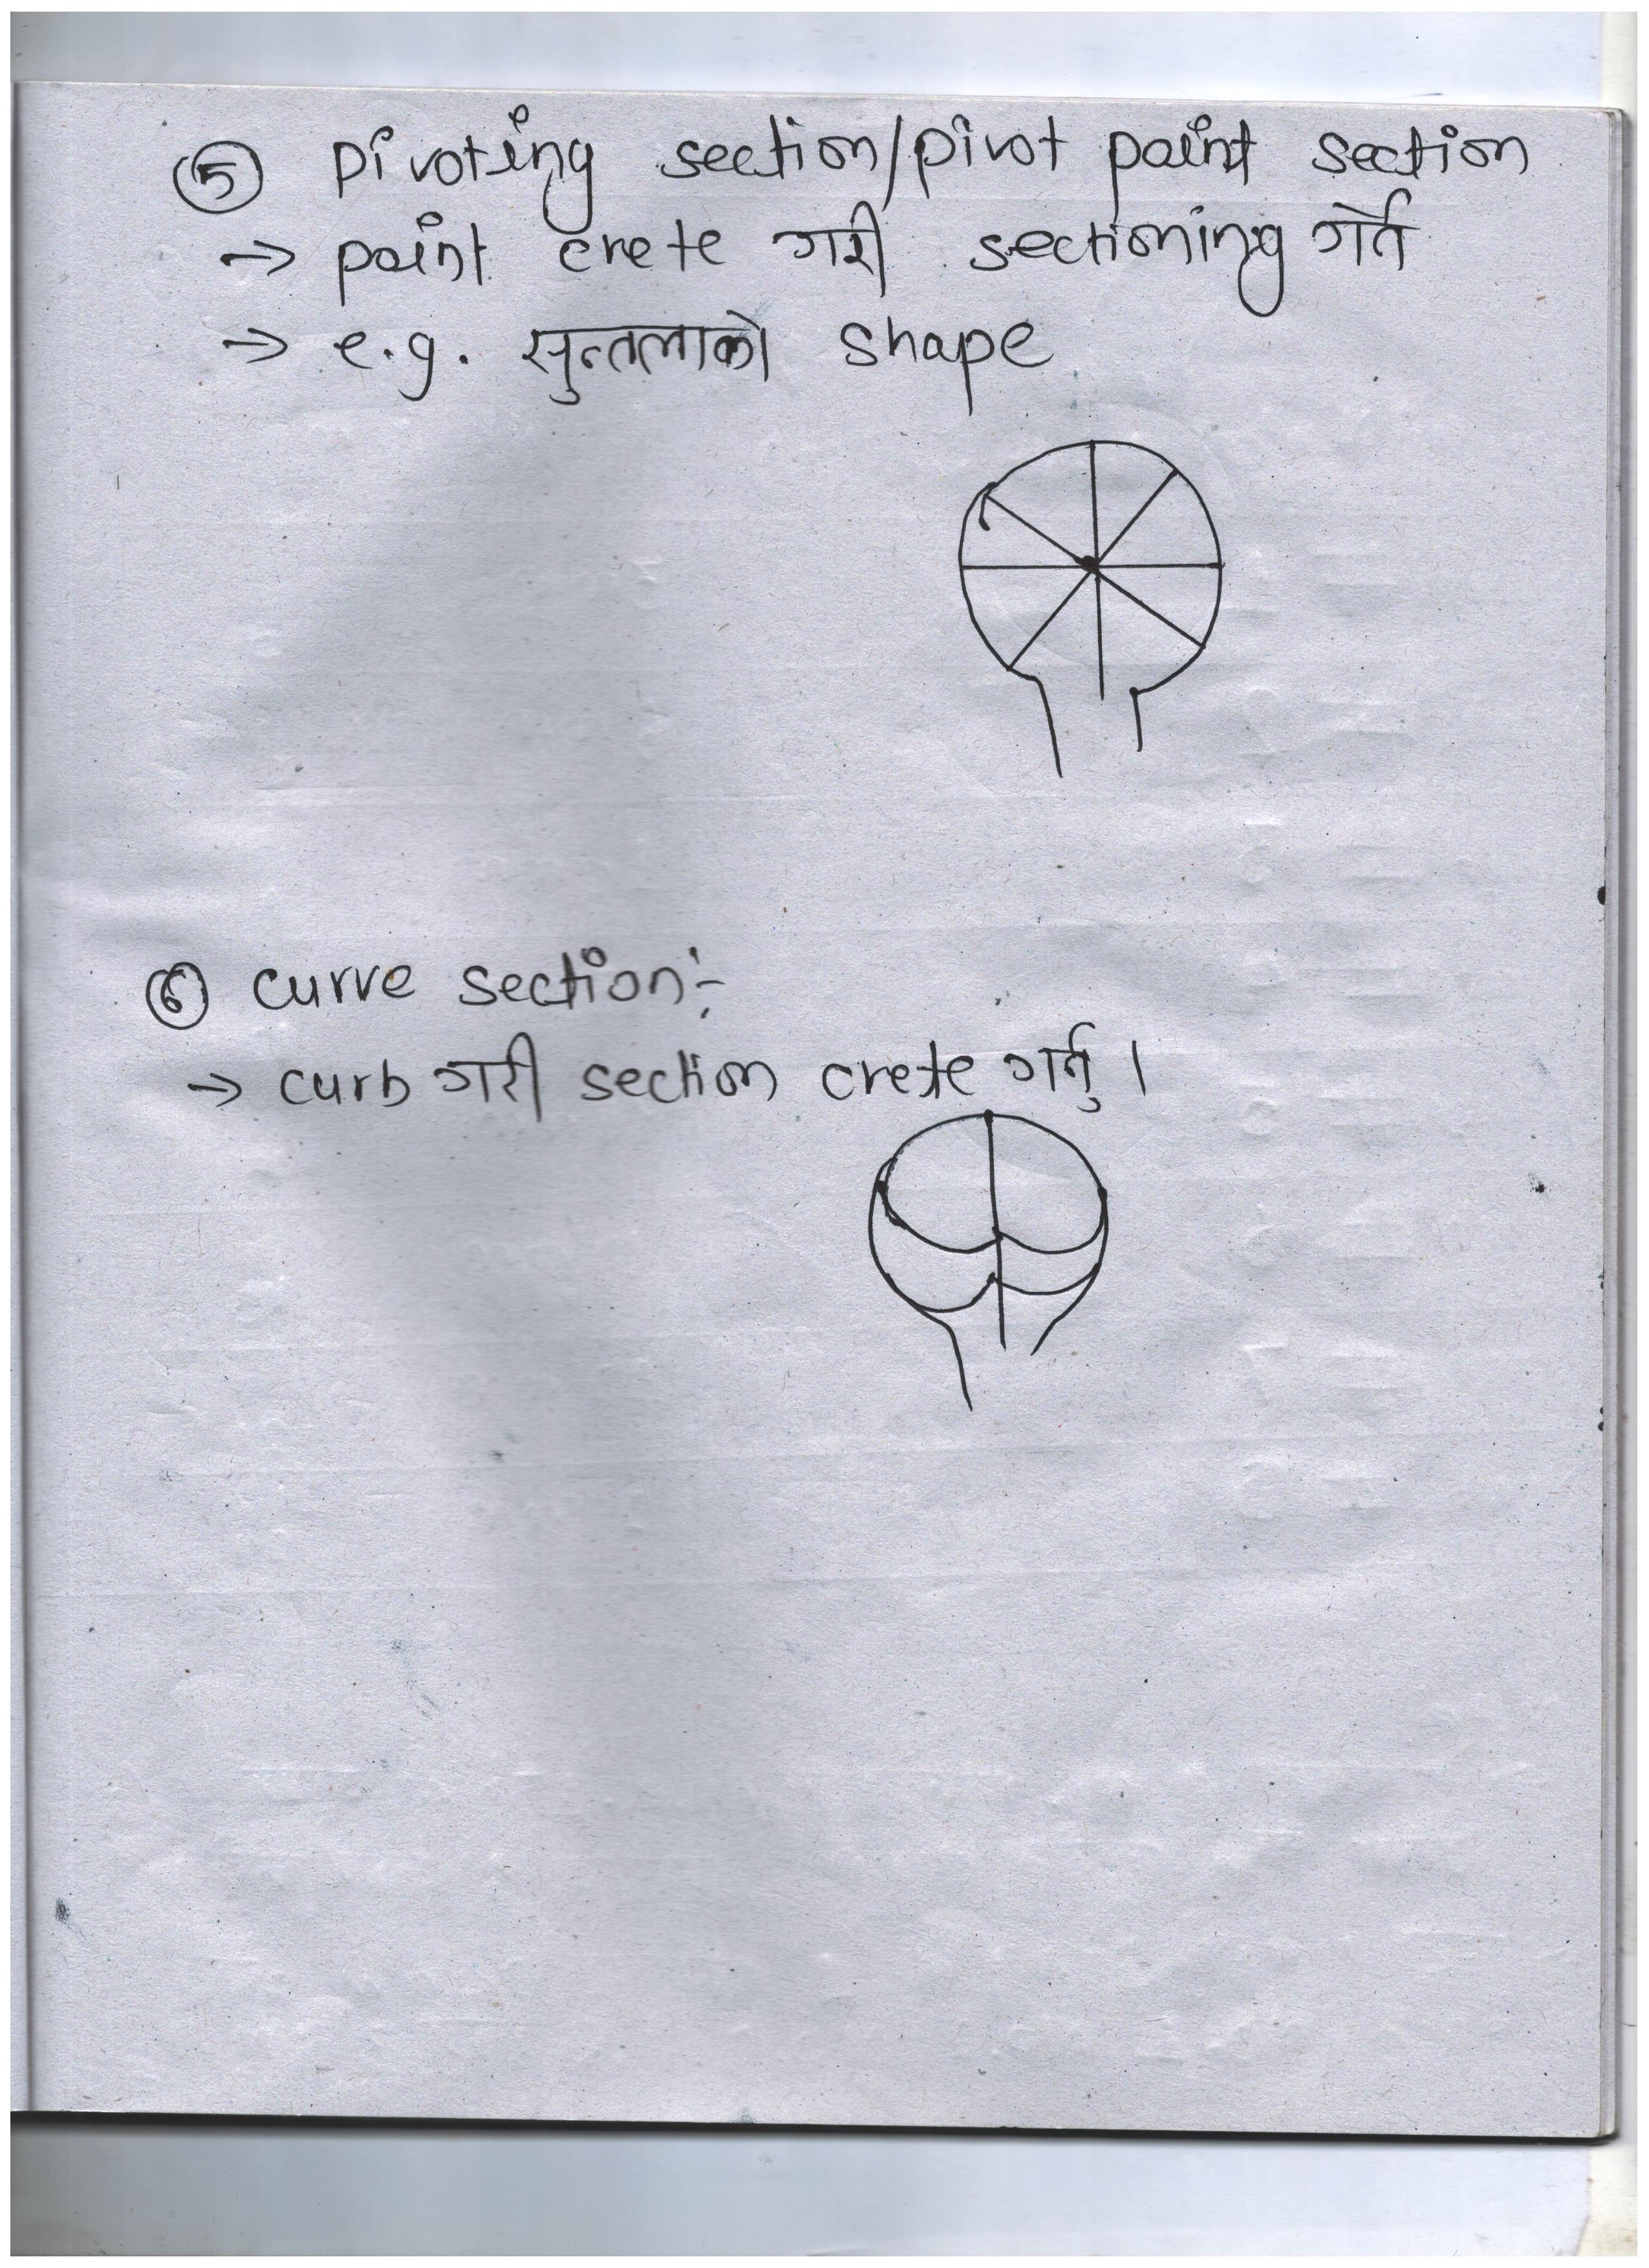 ⑤ pivoting section/pivot point section
→ point crete गरी sectioning गर्ने
→ e.g. सुन्तलाको shape
⑥ curve section:-
→ curb गरी section crete गर्नु ।